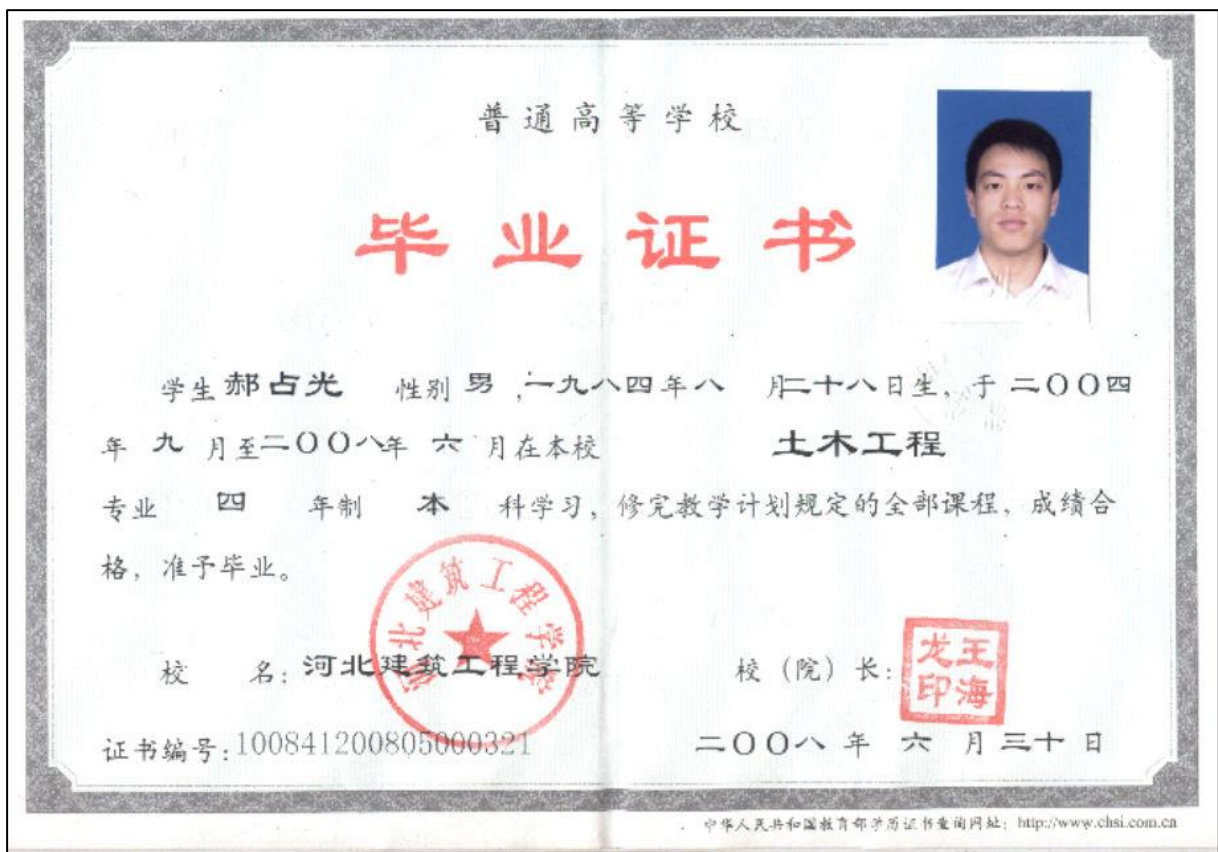 普通高等学校
毕业证书
学生 郝占光 性别 男,一九八四年八 月二十八日生,于 二〇〇四
年 九 月至二〇〇八年 六 月在本校 土木工程
专业 四 年制 本 科学习,修完教学计划规定的全部课程,成绩合
格,准予毕业。
河北建筑工程学院
校 名:河北建筑工程学院 校(院)长:
王海龙印
证书编号:100841200805000321 二〇〇八 年 六 月 三十 日
中华人民共和国教育部学历证书查询网址:http://www.chsi.com.cn